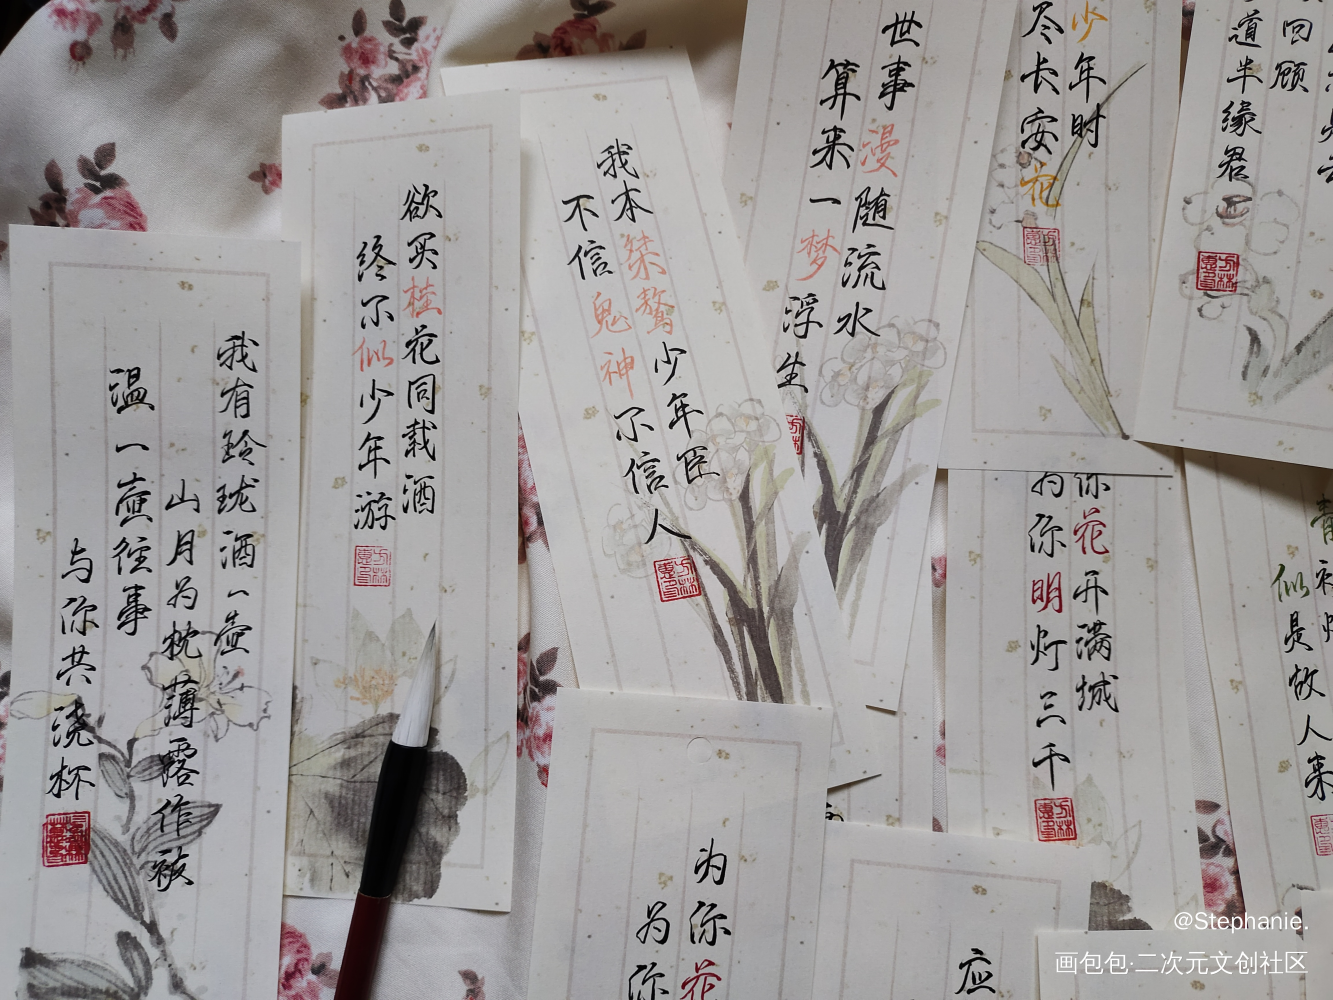 我有铃珑酒一壶
山月为枕薄露作被
温一壶往事
与你共浇杯
欲买桂花同载酒
终不似少年游
我本桀骜少年臣
不信鬼神不信人
世事漫随流水
算来一梦浮生
少年时
尽长安花
回顾
道半缘君
你花开满城
为你明灯三千
似是故人来
为你花
为你
应
@Stephanie.
画包包·二次元文创社区